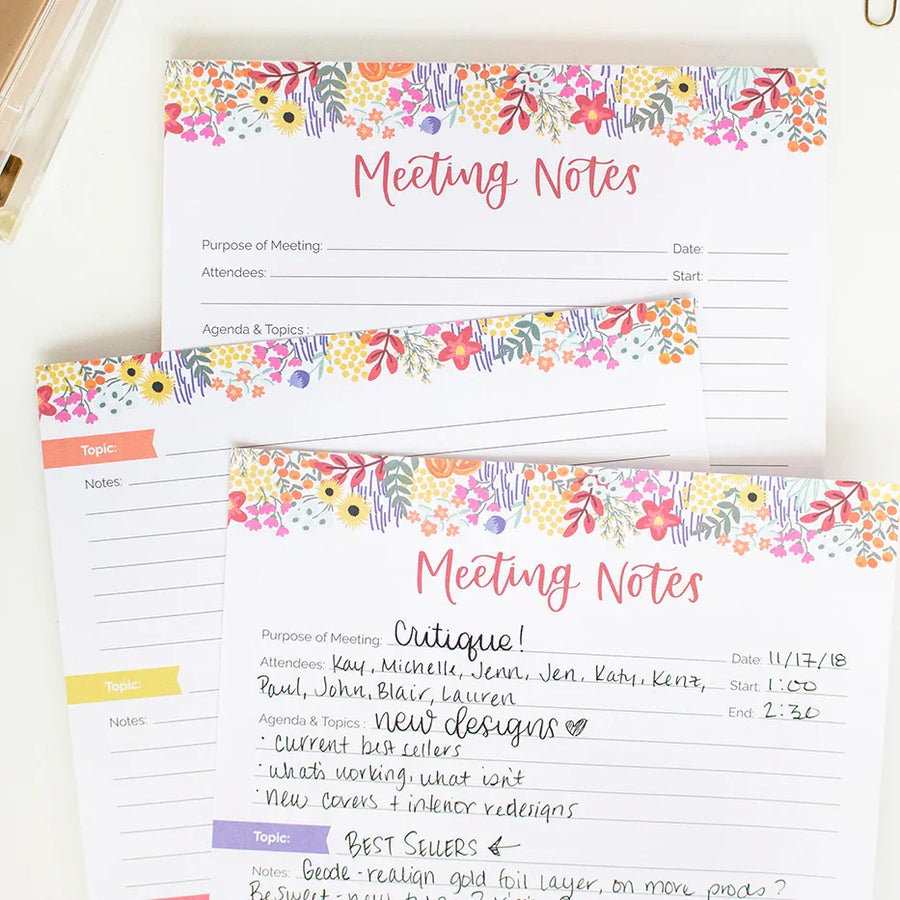 Meeting Notes
Purpose of Meeting: Date:
Attendees: Start:
Agenda & Topics :
Topic:
Notes:
Topic:
Notes:
Meeting Notes
Purpose of Meeting: Critique! Date: 11/17/18
Attendees: Kay, Michelle, Jenn, Jen, Katy, Kenz, Start: 1:00
Paul, John, Blair, Lauren End: 2:30
Agenda & Topics : new designs
· current best sellers
· what's working, what isn't
· new covers + interior redesigns
Topic: BEST SELLERS ←
Notes: Geode - realign gold foil layer, on more prods ?
Be Sweet - new